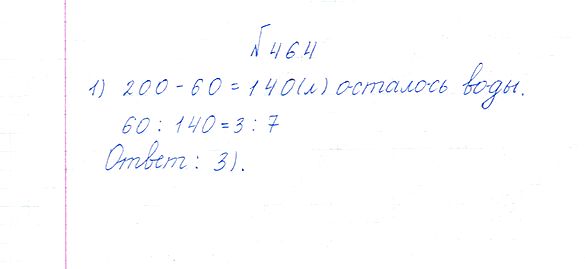 №464
1) 200-60=140(л) осталось воды.
60:140=3:7
Ответ: 3).